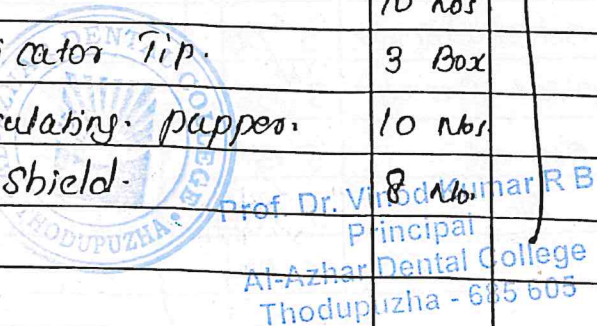 10 Nos
icator Tip. 3 Box
culating. papper. 10 Nos.
shield. 8 No.
DENTAL COLLEGE
THODUPUZHA
Prof. Dr. Vinod Kumar R B
Principal
Al-Azhar Dental College
Thodupuzha - 685 605